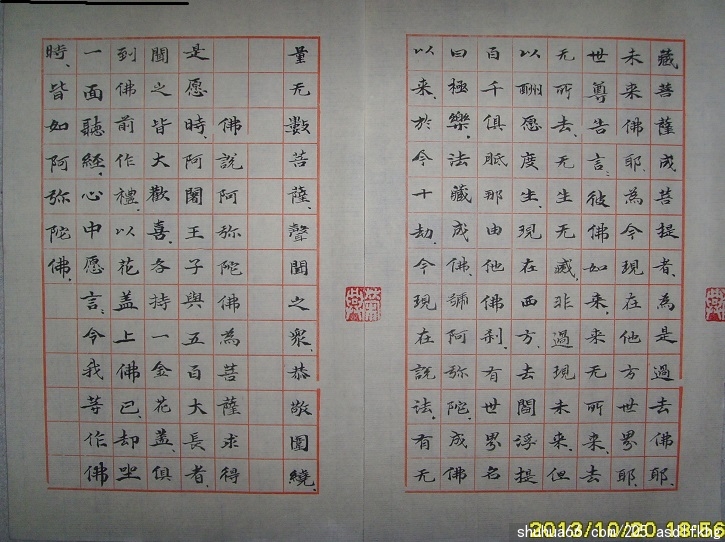 藏菩薩成菩提者、為是過去佛耶、
未来佛耶、為今現在他方世界耶、
世尊告言、彼佛如来、来无所来、去
无所去、无生无滅、非過現未来、但
以酬愿度生、現在西方、去閻浮提
百千俱胝那由他佛刹、有世界名
曰極樂、法藏成佛、號阿弥陀、成佛
以来、於今十劫、今現在説法、有无
量无数菩薩、聲聞之衆、恭敬圍繞、
佛説阿弥陀佛為菩薩求得
是愿時、阿闍王子與五百大長者、
聞之皆大歡喜、各持一金花蓋、俱
到佛前作禮、以花盖上佛已、却坐
一面聽經、心中愿言、今我等作佛
時、皆如阿弥陀佛。
2013/10/20